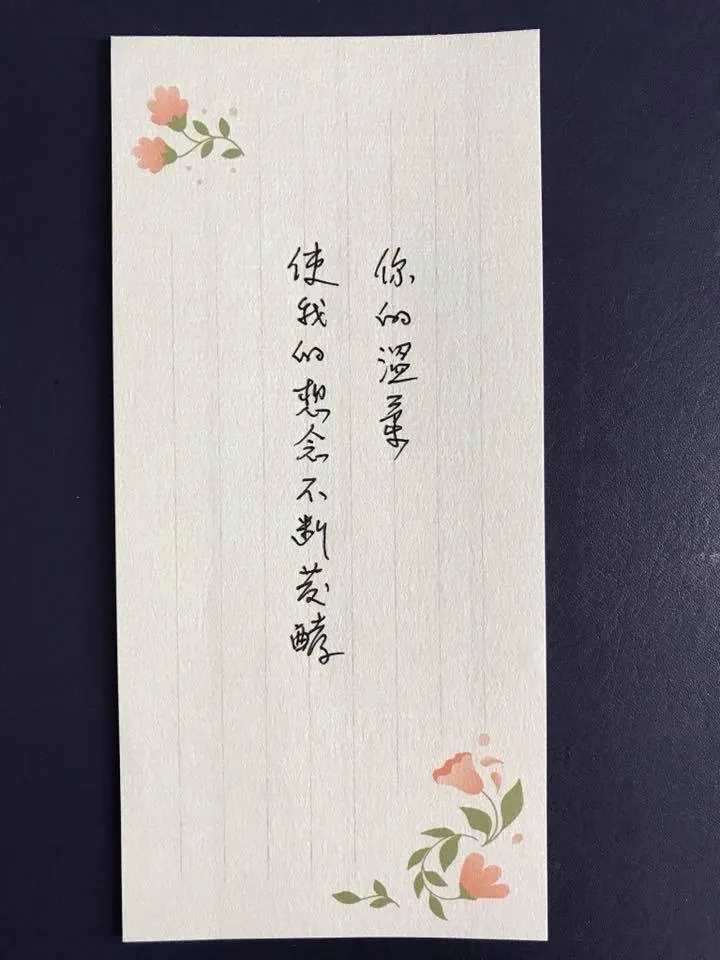 你的溫柔
使我的想念不斷發酵